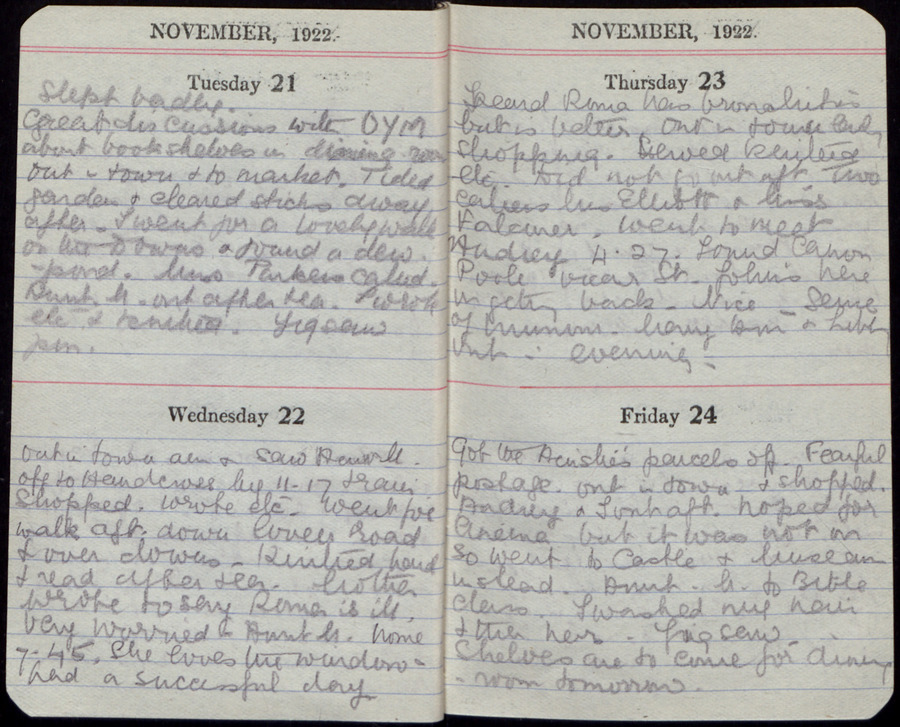 NOVEMBER, 1922.
Tuesday 21
Slept badly.
Great discussions with OYM
about bookshelves in dining room
Out in town & to market. Tidied
garden & cleared sticks away
after. I went for a lovely walk
on the Downs & found a dew-
-pond. Miss Parkers called.
Aunt M. out after tea. I wrote
etc & knitted. Jigsaw
pm.
Wednesday 22
Out in town am & saw Aunt M.
off to Handcross by 11-17 train
Shopped. Wrote etc. Went for
walk aft. down Lovers Road
& over downs. Knitted hard
& read after tea. Mother
wrote to say Roma is ill,
Very worried. Aunt M. home
7-45. She loves the window-
had a successful day
NOVEMBER, 1922.
Thursday 23
Heard Roma has bronchitis
but is better. Out in town early
shopping. Sewed knitted
etc. Did not go out aft. Two
callers Mrs Elliott & Miss
Falconer. Went to meet
Audrey 4.27. Found Canon
Poole vicar St. John's here
in getting back. Nice Sense
of humour.
out in evening.
Friday 24
Got the Ainslie's parcels off. Fearful
postage. Out in town & shopped.
Audrey & I out aft. hoped for
Cinema but it was not on
so went to Castle & Museum
instead. Aunt M. to Bible
Class. I washed my hair
& the hers. Jigsaw.
Shelves are to come for dining
-room tomorrow.